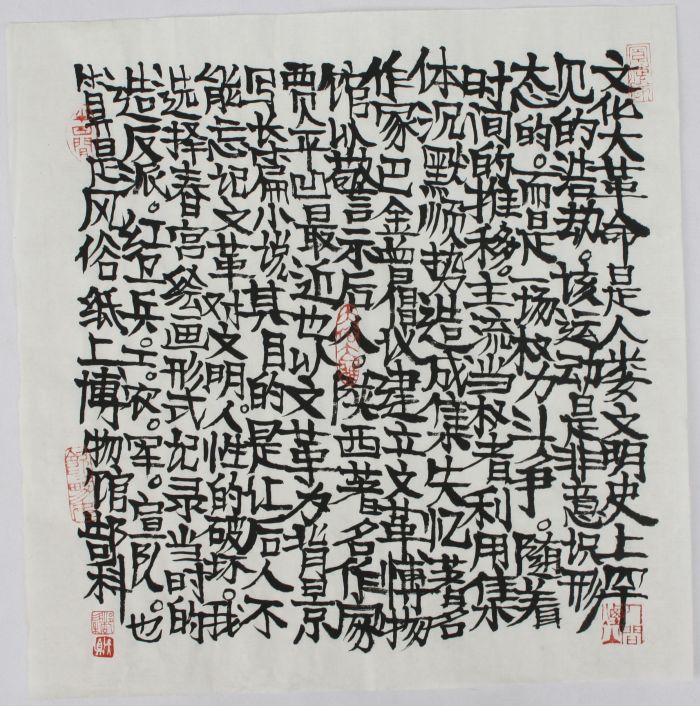 文化大革命是人类文明史上罕
见的浩劫。该运动是非意识形
态的。而是一场权力斗争。随着
时间的推移。主流当权者利用集
体沉默顺势造成集失忆著名
作家巴金曾倡议建立文革博物
馆以警示后人。陕西著名作家
贾平凹最近也以文革为背景
写长篇小说。其目的是让后人不
能忘记文革对文明。人性的破坏。我
选择春宫绘画形式记录当时的
造反派。红卫兵。工。农。军。宣队。也
算是风俗纸上博物馆